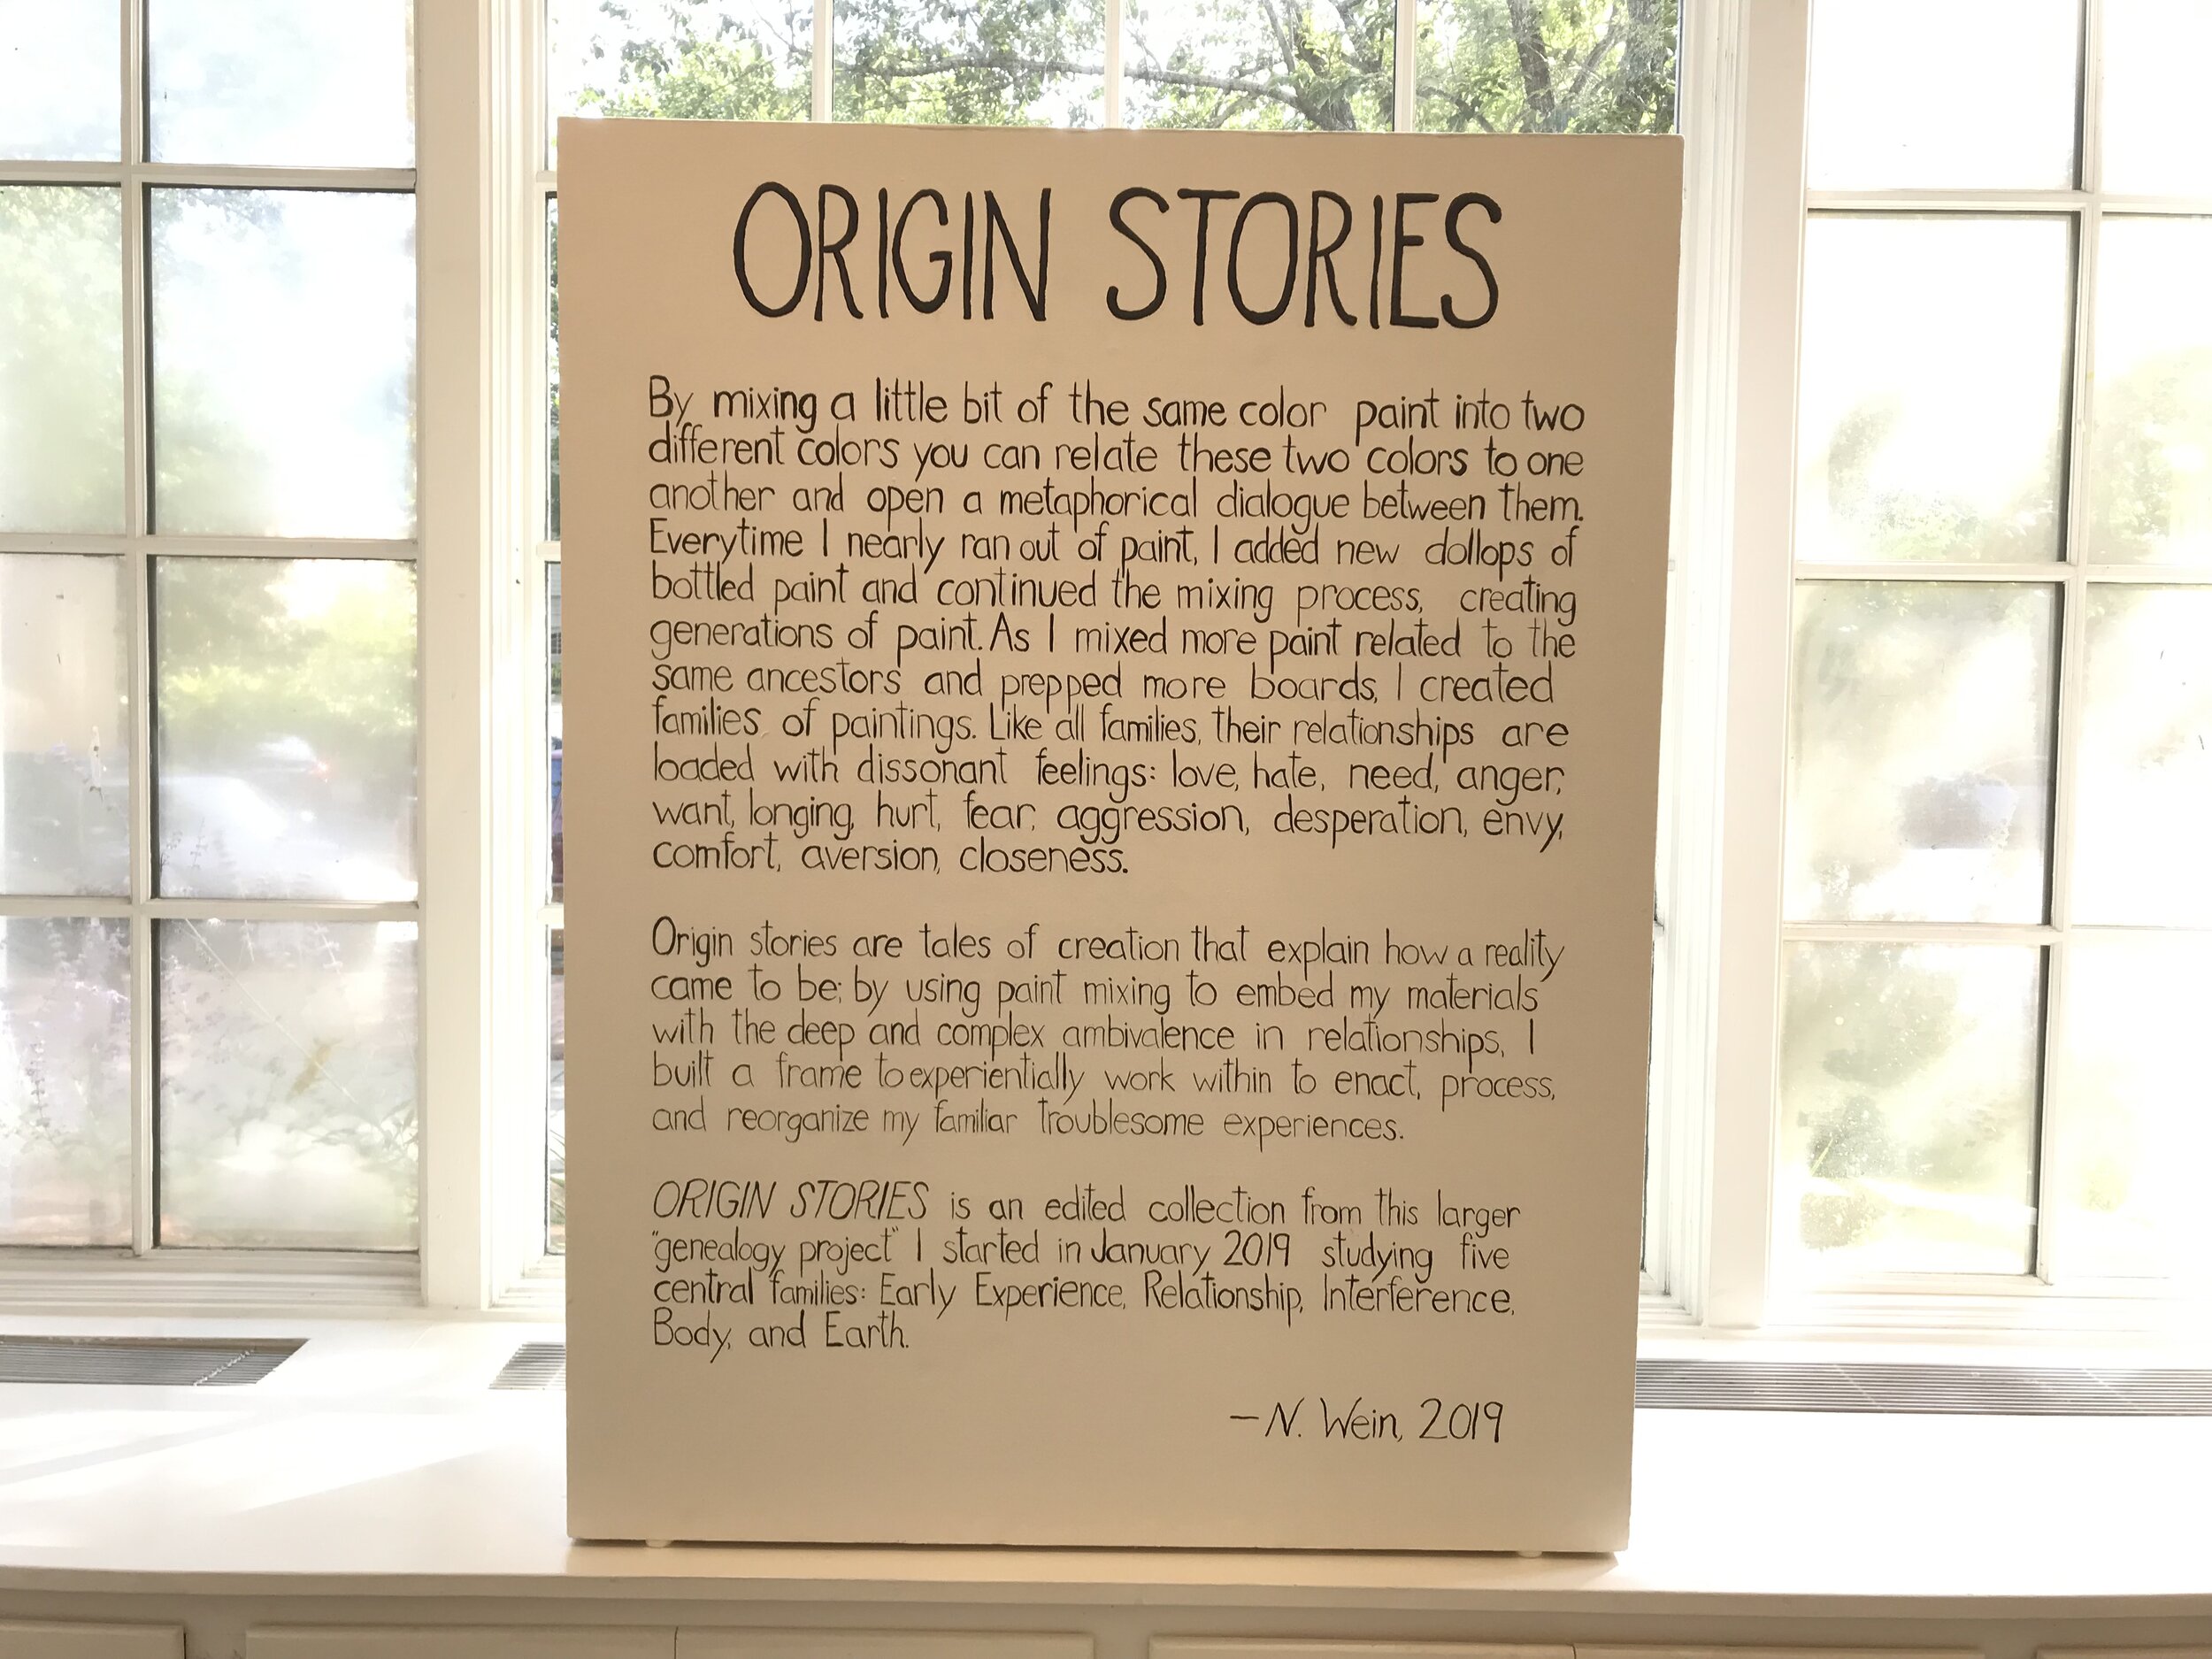 ORIGIN STORIES
By mixing a little bit of the same color paint into two
different colors you can relate these two colors to one
another and open a metaphorical dialogue between them.
Everytime I nearly ran out of paint, I added new dollops of
bottled paint and continued the mixing process, creating
generations of paint. As I mixed more paint related to the
same ancestors and prepped more boards, I created
families of paintings. Like all families, their relationships are
loaded with dissonant feelings: love, hate, need, anger,
want, longing, hurt, fear, aggression, desperation, envy,
comfort, aversion, closeness.
Origin stories are tales of creation that explain how a reality
came to be; by using paint mixing to embed my materials
with the deep and complex ambivalence in relationships, I
built a frame to experientially work within to enact, process,
and reorganize my familiar troublesome experiences.
ORIGIN STORIES is an edited collection from this larger
"genealogy project" I started in January 2019 studying five
central families: Early Experience, Relationship, Interference,
Body, and Earth.
—N. Wein, 2019